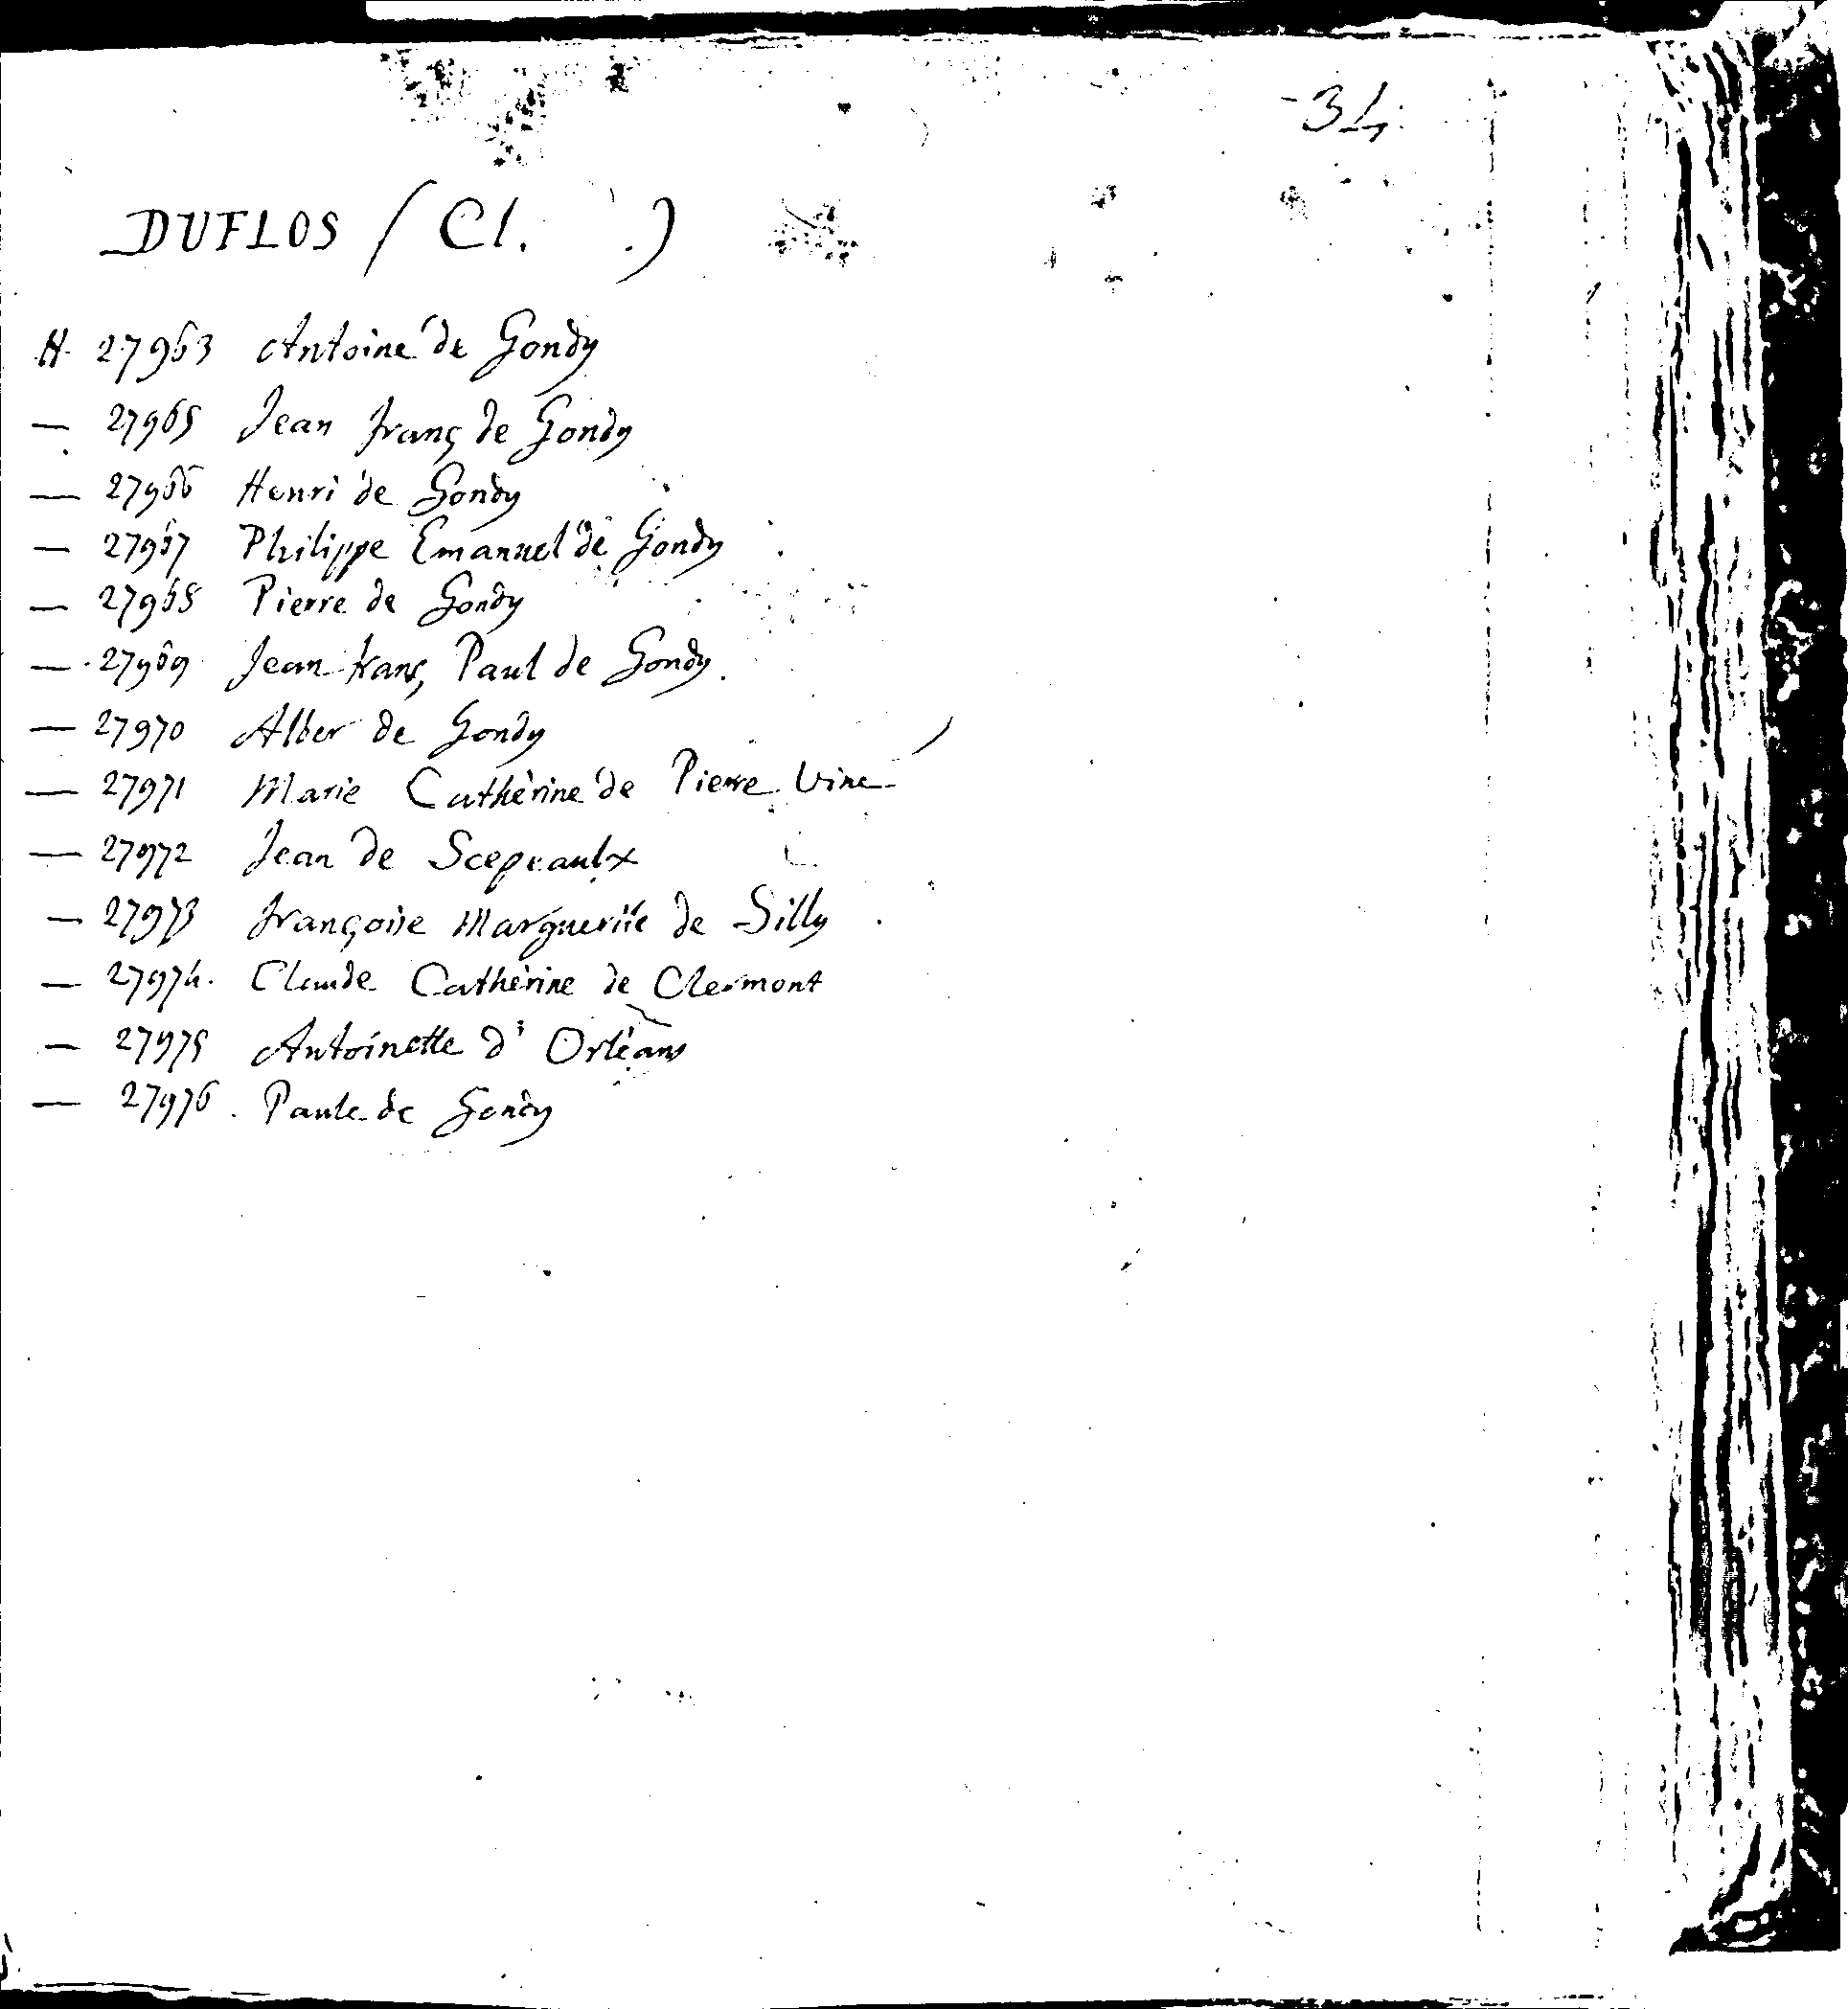 34
DUFLOS (Cl. .)
H. 27963 Antoine de Gondy
— 27965 Jean Franç de Gondy
— 27966 Henri de Gondy
— 27967 Philippe Emanuel de Gondy
— 27968 Pierre de Gondy
— 27969 Jean franç Paul de Gondy.
— 27970 Alber de Gondy
— 27971 Marie Cathérine de Pierre Vive
— 27972 Jean de Scepeaulx
— 27973 Françoise Marguerite de Silly
— 27974. Claude Cathérine de Clermont
— 27975 Antoinette d'Orléans
— 27976. Paule de Gondy